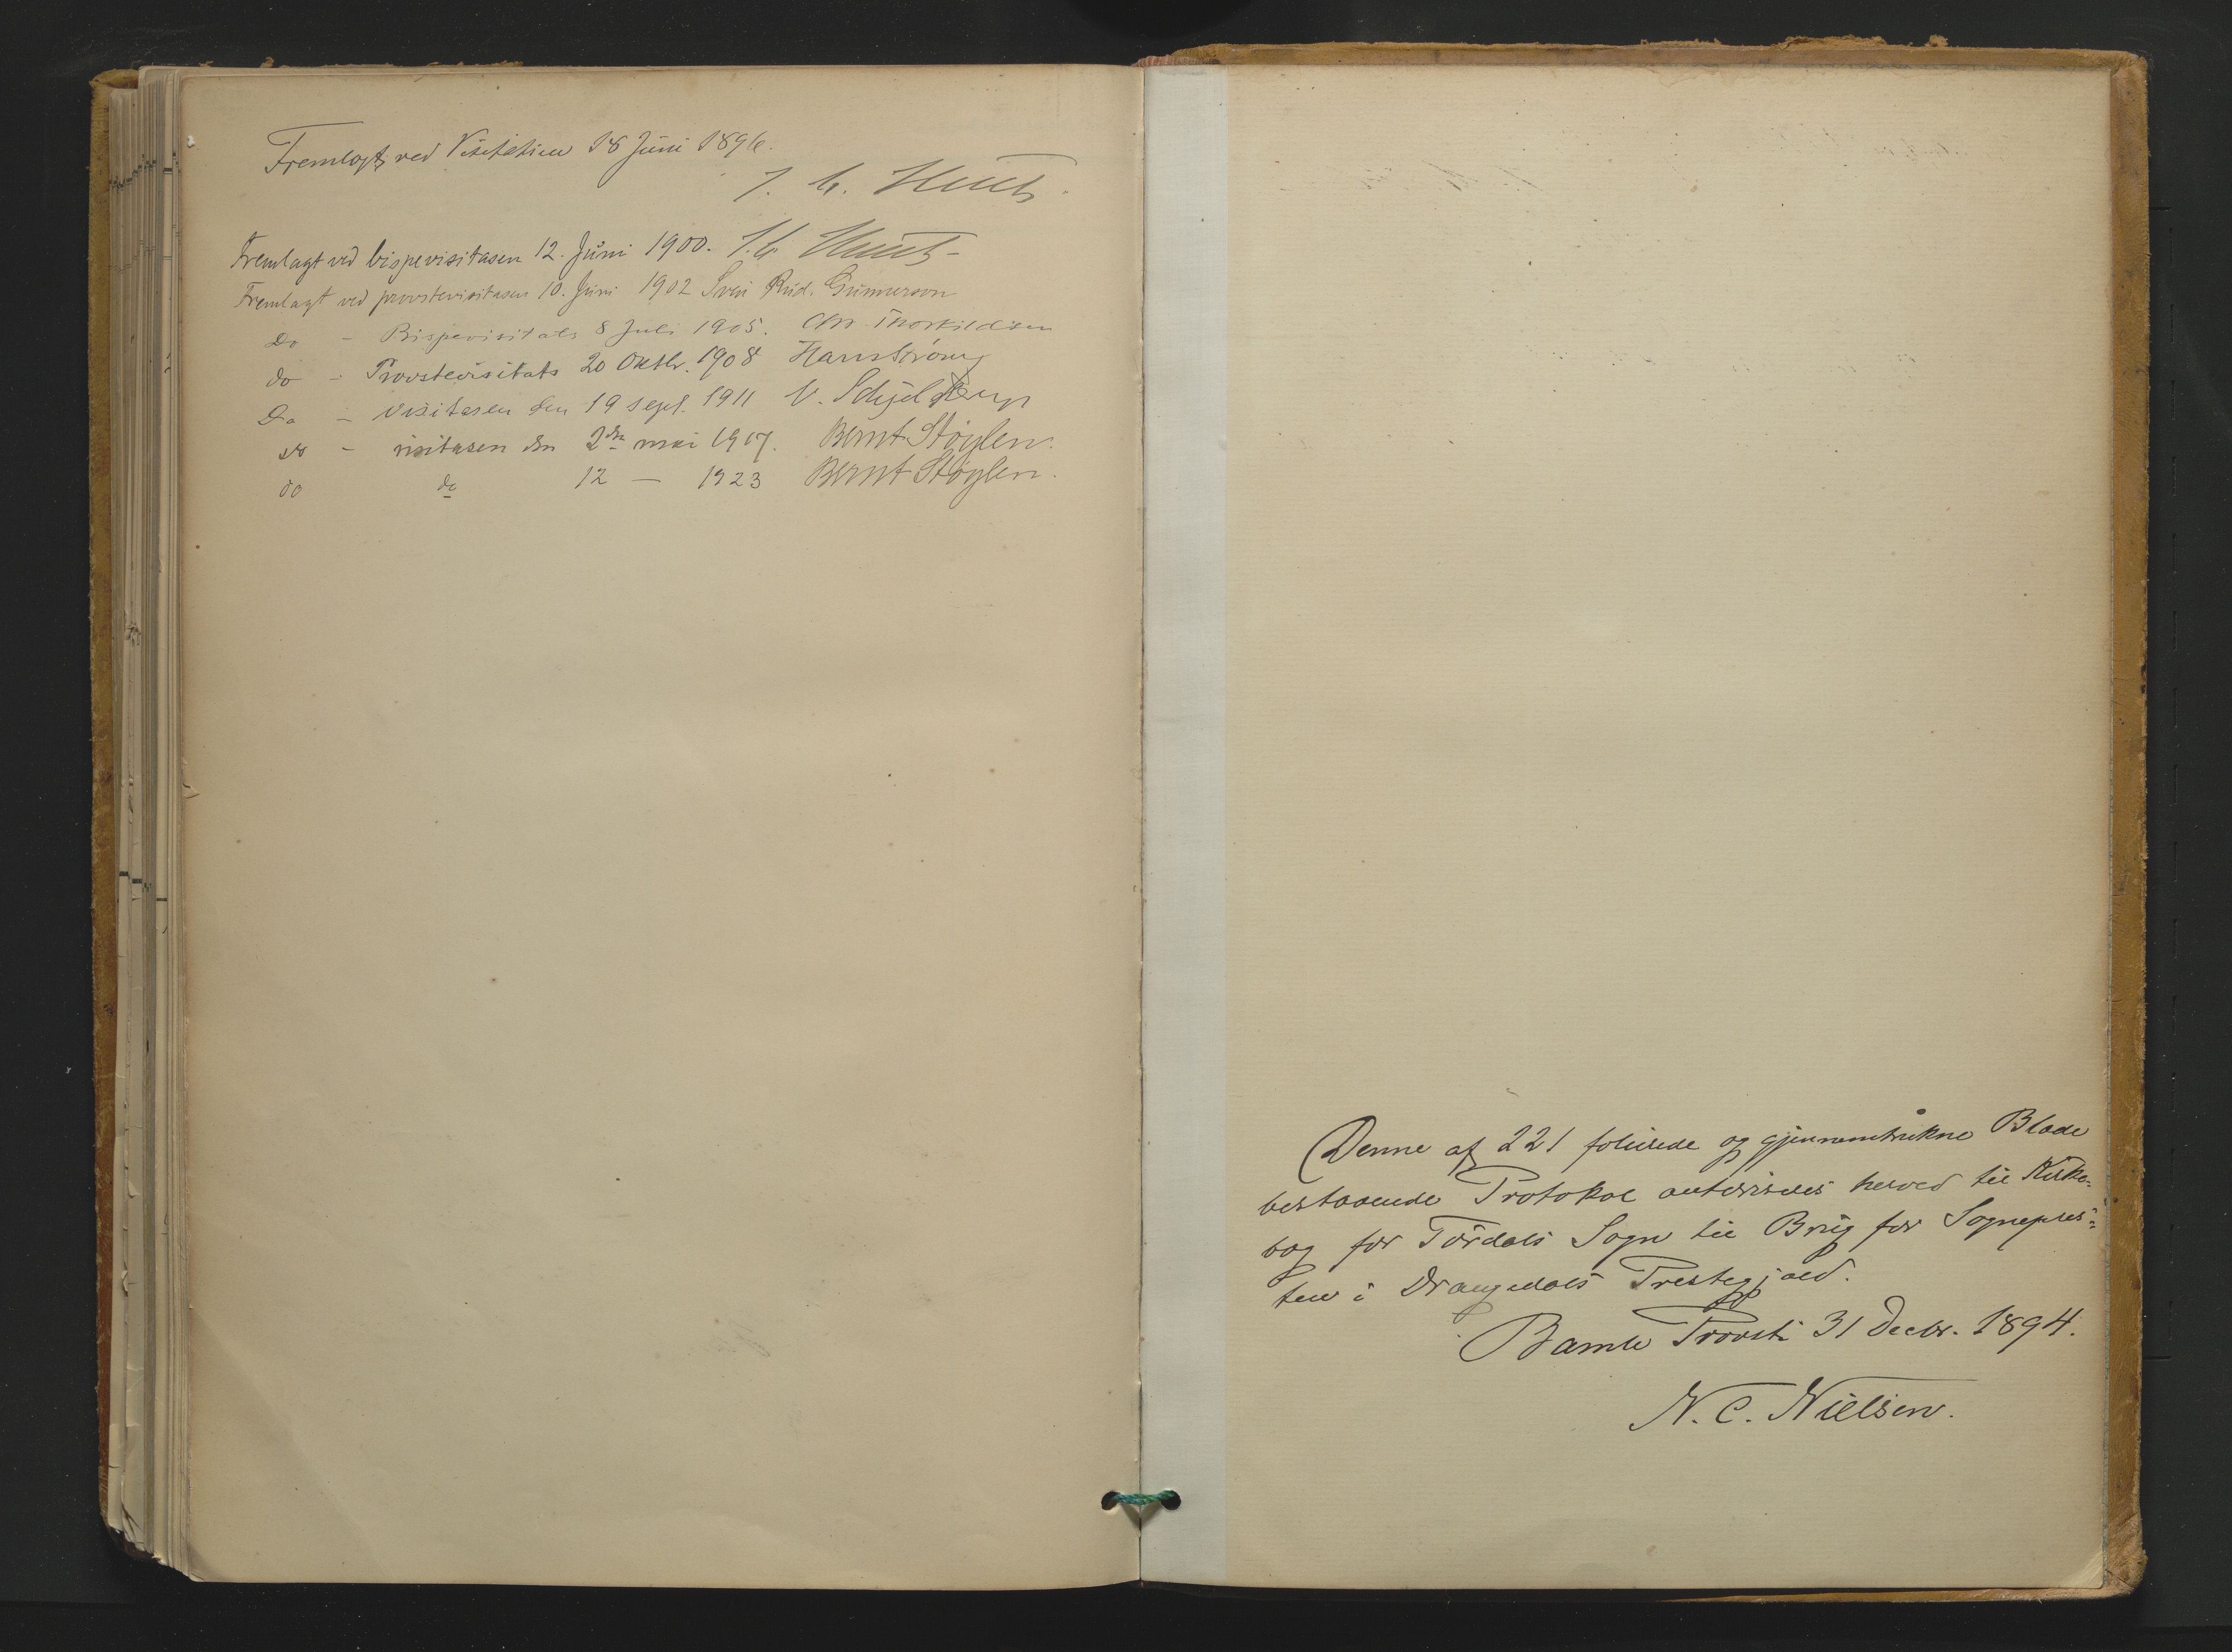 Fremlagt ved Visitatien 18 Juni 1896.
J. C. Heuch.
Fremlagt ved bispevisitasen 12. Juni 1900. J. C. Heuch
Fremlagt ved provstevisitasen 10. Juni 1902 Svein Rud. Gunnerson
Do - Bispevisitats 8 Juli 1905. Chr. Thorkildsen
do - Provstevisitats 20 Oktbr. 1908 Hans Strøm
Do - Visitasen den 19 sept. 1911 V. Schjelderup
do - visitasen den 2den mai 1917. Bernt Støylen.
do do 12 — 1923 Bernt Støylen.
Denne af 221 folierede og gjennemtrukne Blade
bestaaende Protokol autoriseres herved til Kirke-
bog for Tørdals Sogn til Brug for Sognepres-
ten i Drangedals Prestegjæld.
Bamle Provsti 31 Decbr. 1894.
N. C. Nielsen.